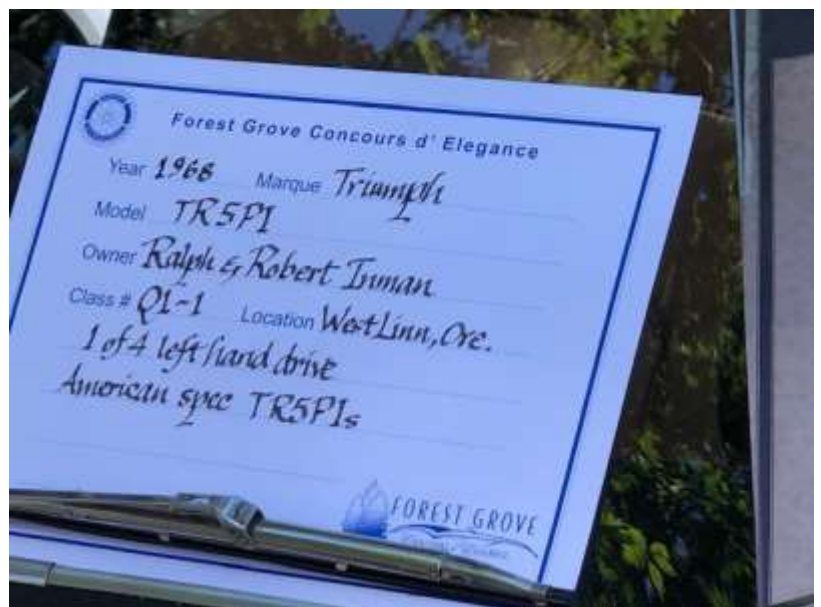 Forest Grove Concours d' Elegance
Year 1968 Marque Triumph
Model TR5PI
Owner Ralph & Robert Inman
Class # Q1-1 Location West Linn, Ore.
1 of 4 left hand drive
American spec TR5PIs
FOREST GROVE